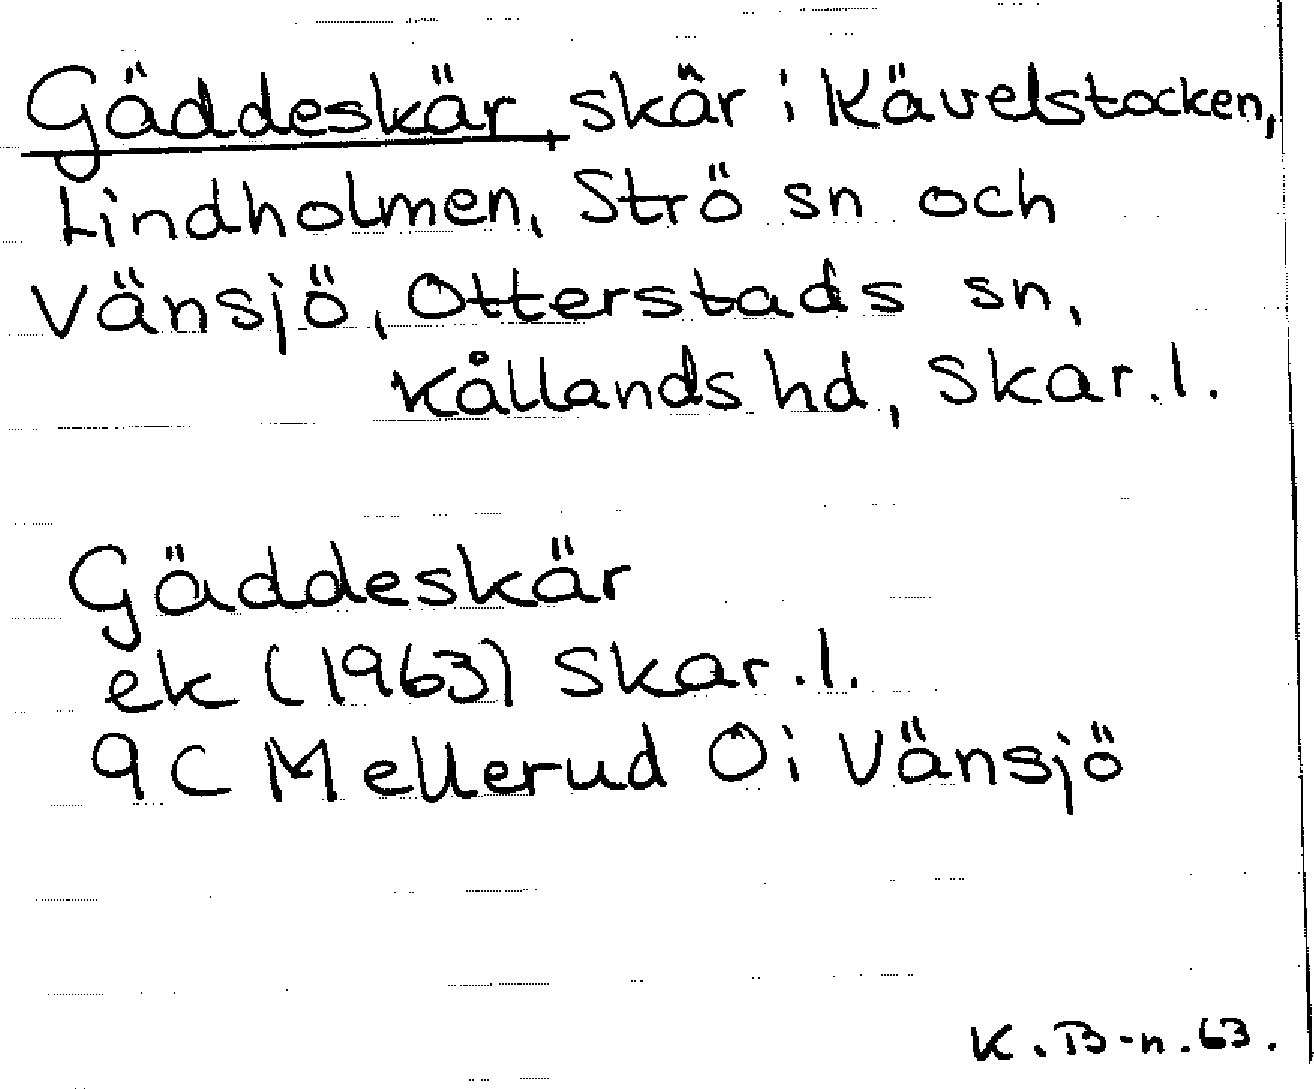 Gäddeskär, skär i Kävelstocken,
Lindholmen, Strö sn och
Vänsjö, Otterstads sn,
Kållands hd, Skar.l.
Gäddeskär
ek (1963) Skar.l.
9C Mellerud Öi Vänsjö
K.B-n.63.